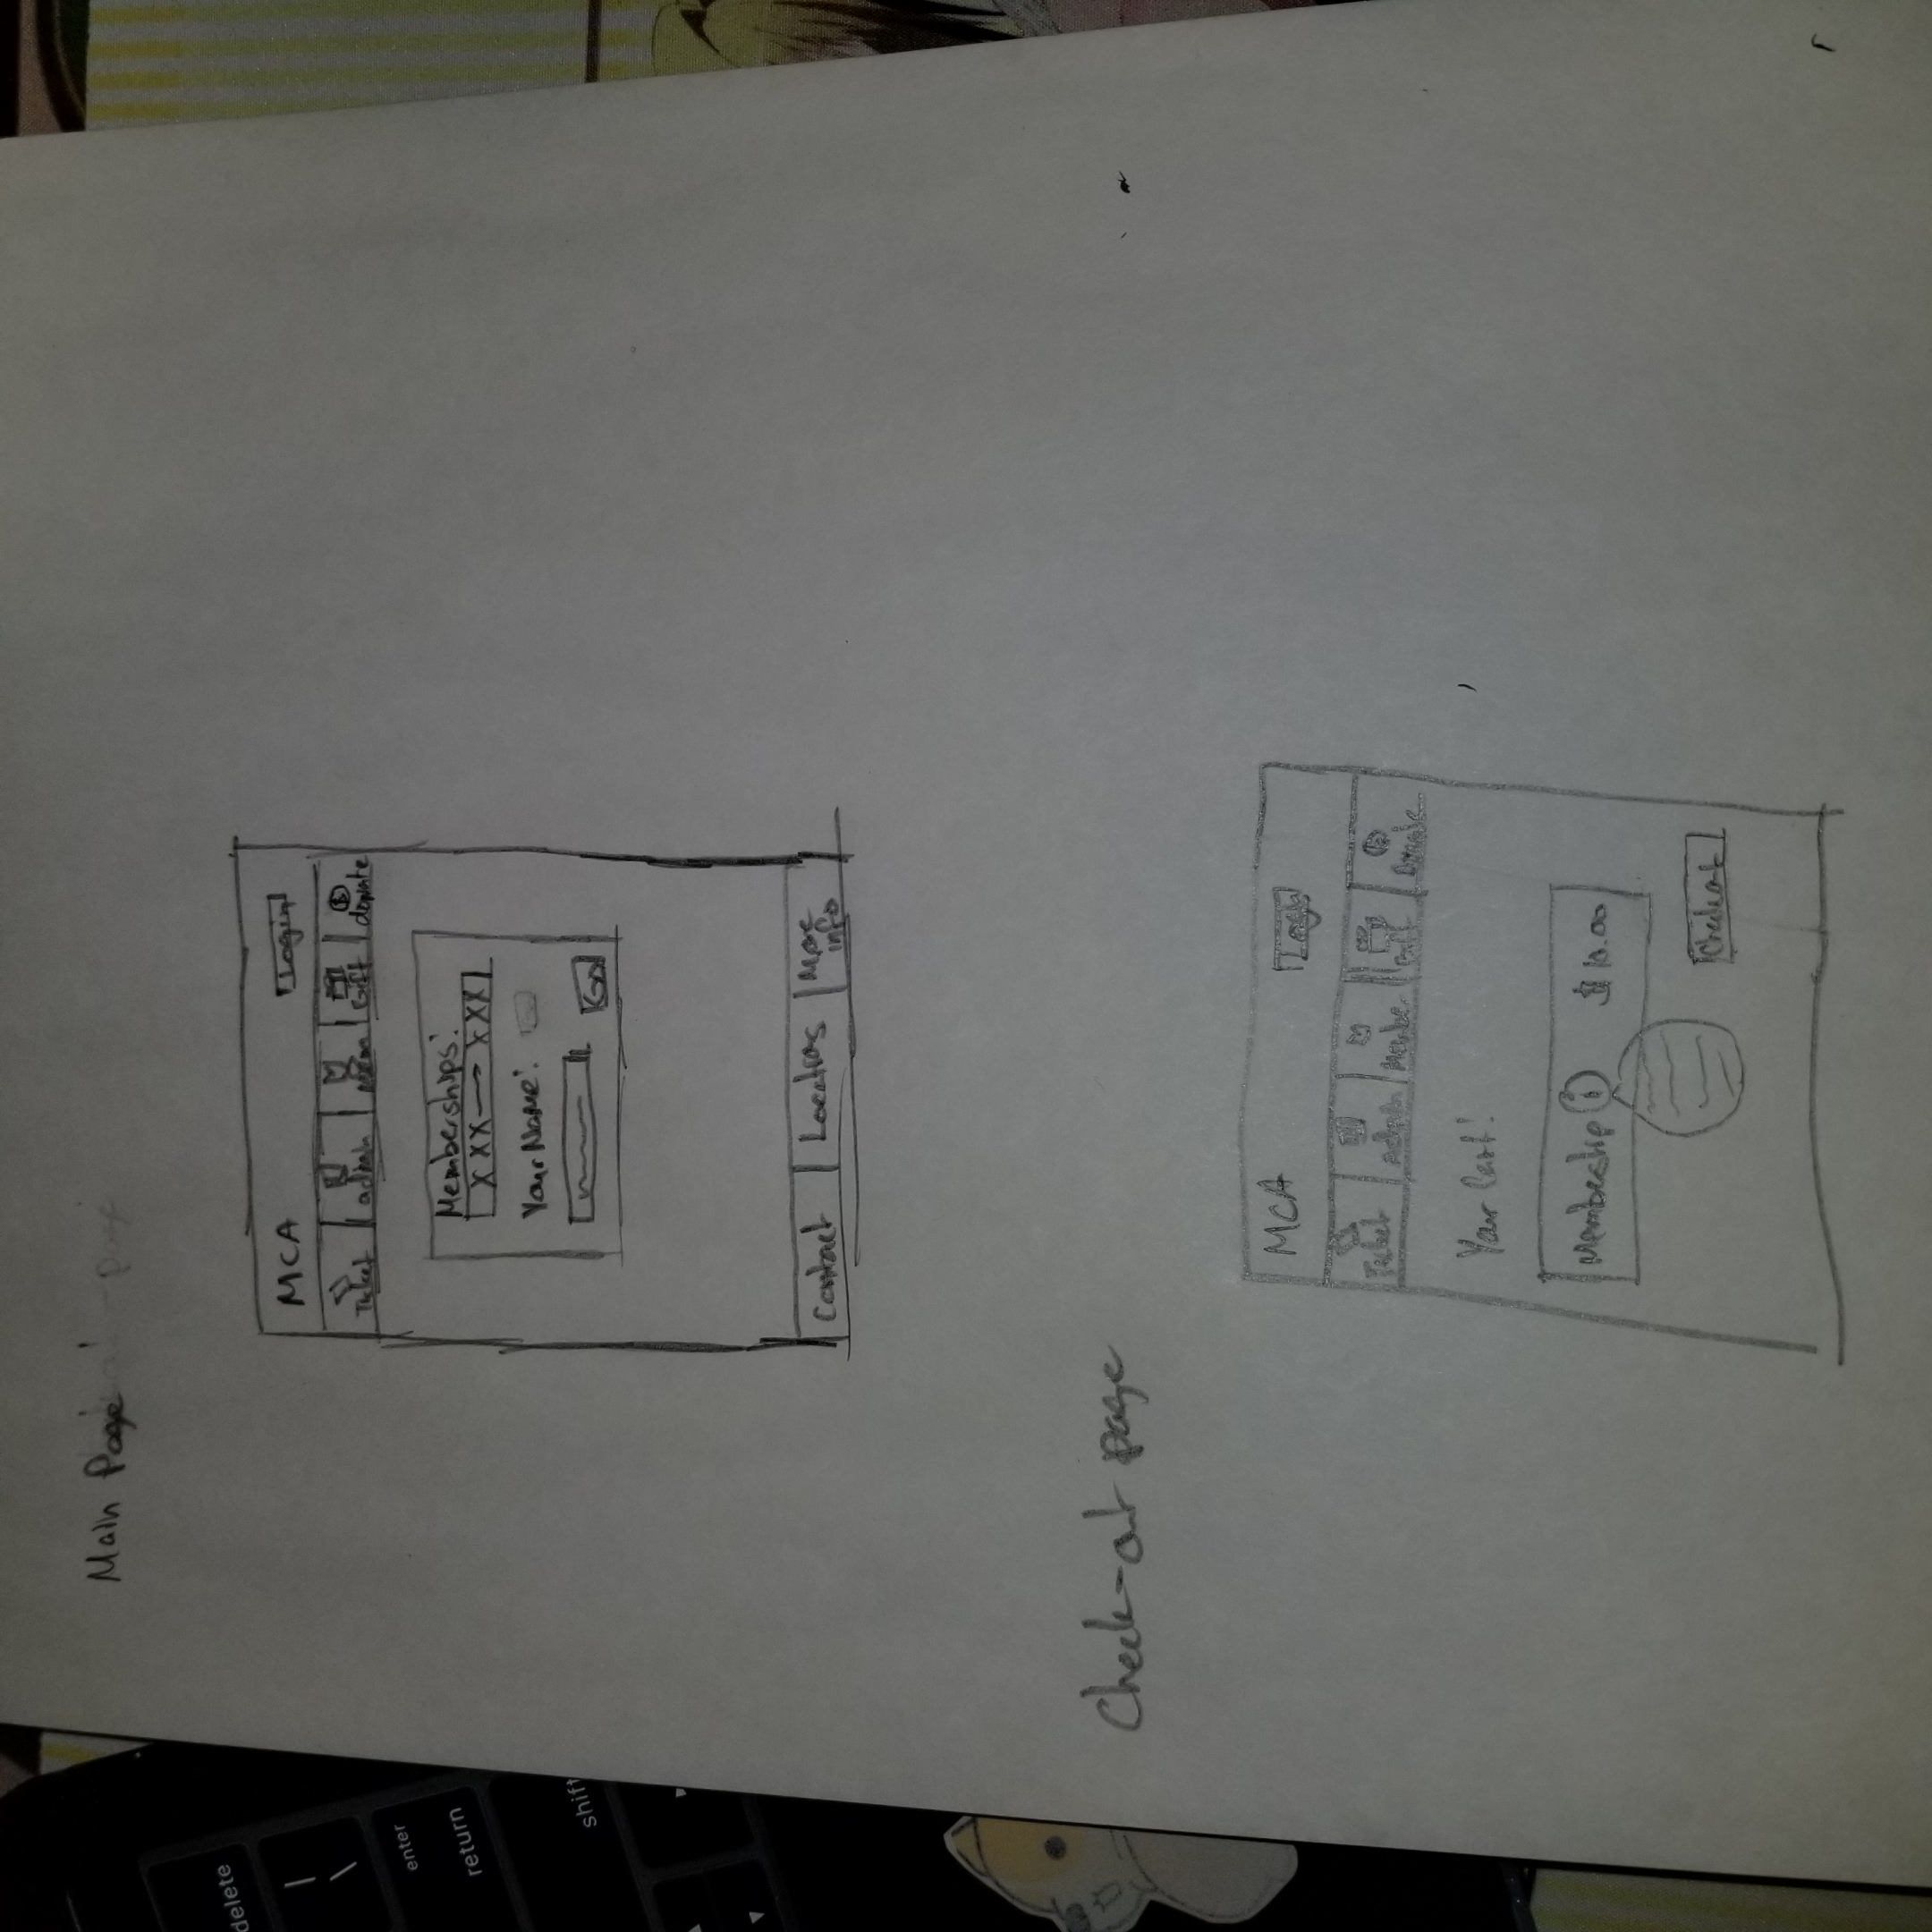 delete
|
\
enter
return
shift
Main Page
page
MCA
Login
Ticket
admin
mem
Gift
donate
Memberships:
XXX → XXX
Your Name:
Go
Contact
Locations
More
info
Check-out page
MCA
Login
Ticket
Admin
Membe
Gift
Donate
Your Cart!
Membership i $10.00
Checkout